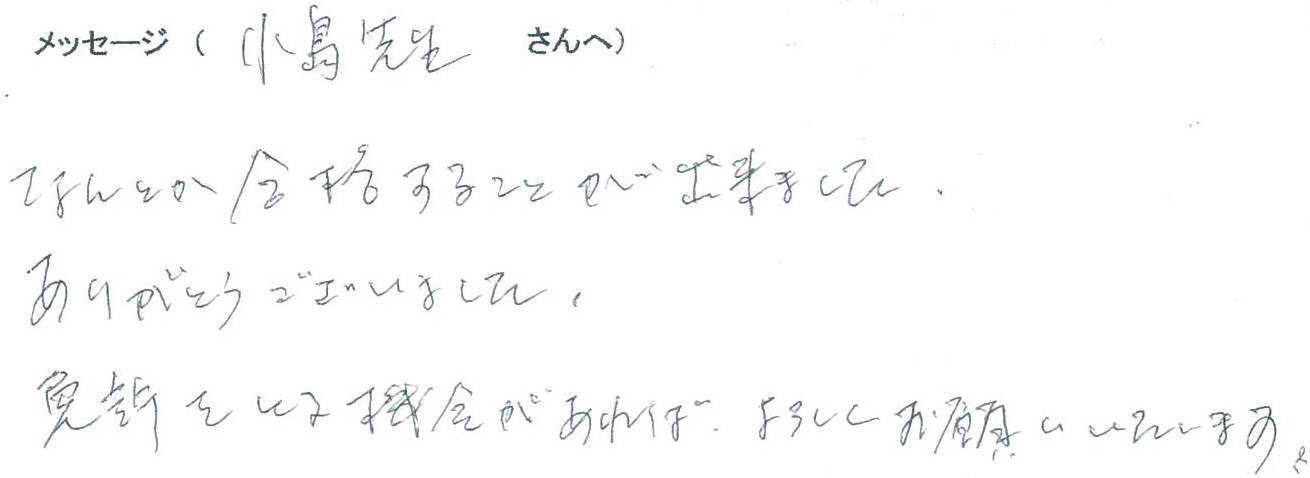 メッセージ（小島先生 さんへ）
なんとか合格することが出来ました.
ありがとうございました.
免許をとる機会があれば よろしくお願いいたします。